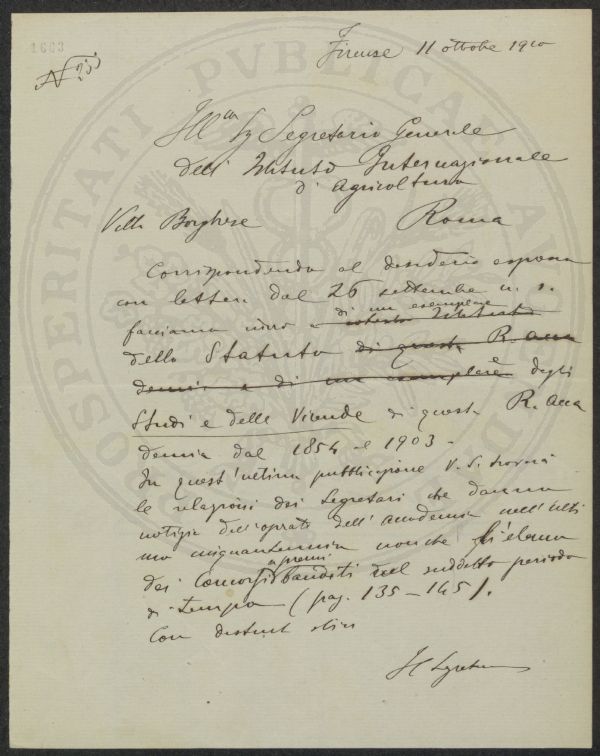 1603
N 255
Firenze 11 ottobre 1910
PROSPERITATI PUBLICAE AUGENDAE
Ill.mo Sg Segretario Generale
dell' Istituto Internazionale
d' Agricoltura
Villa Borghese Roma
Corrispondendo al desiderio espresso
con lettera del 26 settembre u. s.
facciamo invio a cotesto Istituto di un esemplare
dello Statuto di questa R. Acca
demia e di un esemplare e degli
Studi e delle Vicende di questa R. Acca
demia dal 1854 al 1903 -
In quest'ultima pubblicazione V. S. troverà
le relazioni dei Segretari che danno
notizia dell'operato dell'Accademia nell'ulti
mo cinquantennio nonché l'elenco
dei Concorsi a premi banditi nel suddetto periodo
di tempo (pag. 135 - 145).
Con distinta stima
Il Segretario